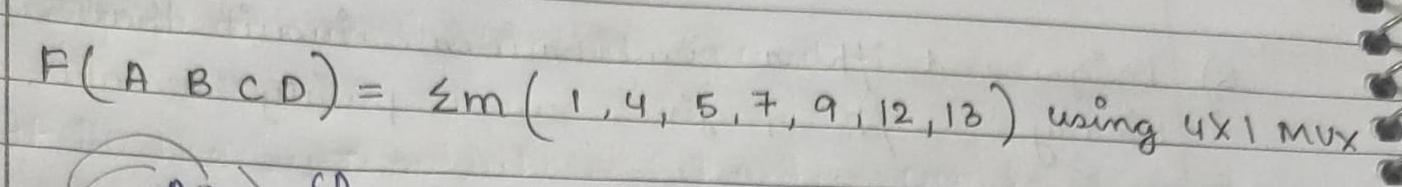 F(A B C D) = Σm(1,4,5,7,9,12,13) using 4X1 MUX
CD